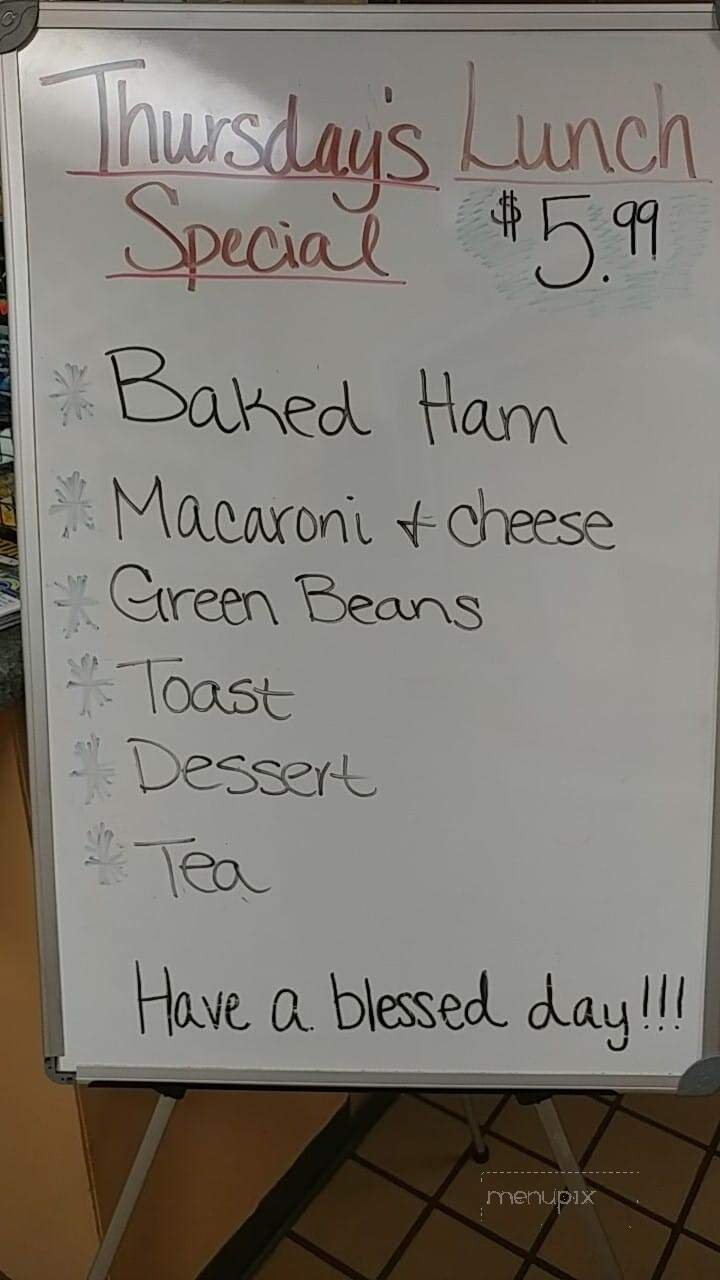 Thursday's Lunch
Special $5.99
* Baked Ham
* Macaroni & cheese
* Green Beans
* Toast
* Dessert
* Tea
Have a blessed day!!!
menupix